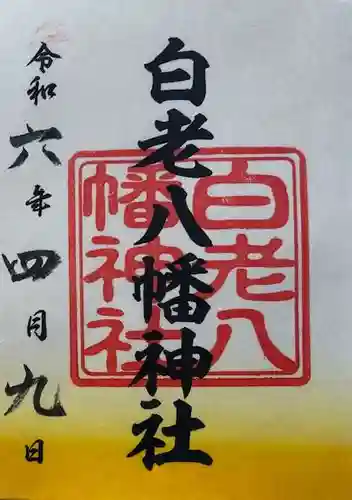 白老八幡神社
白老八
幡神社
令和六年四月九日